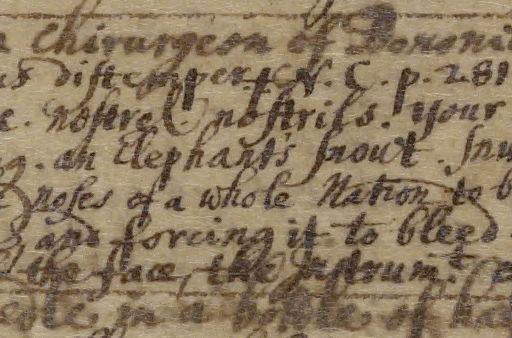 Chirurgeon of Bononi
distemper. N. C. p. 281
nostrel nostrils. your
an Elephants snout. snu
noses of a whole Nation to b
and forcing it to bleed
the face, the
in a bottle of